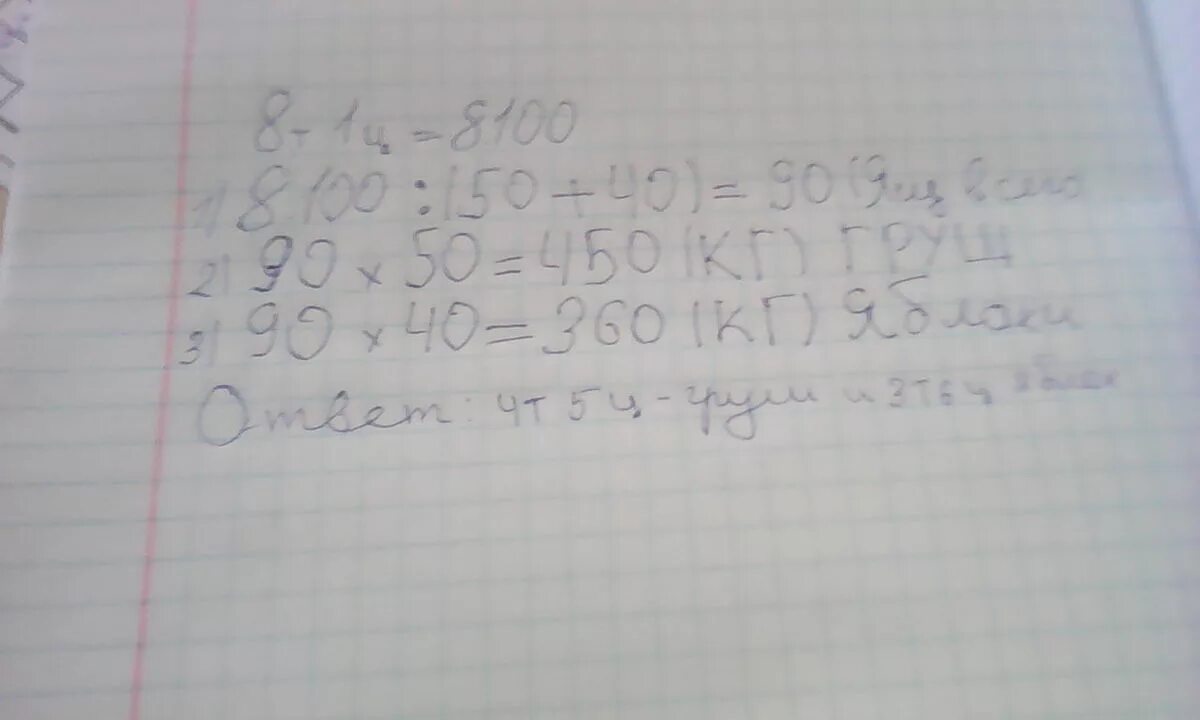 8т 1ц = 8100
1) 8100 : (50 + 40) = 90 (Ящ всего
2) 90 х 50 = 450 (КГ) ГРУЩ
3) 90 х 40 = 360 (КГ) Яблоки
Ответ: 4т 5ц - груш и 3т6ц яблок